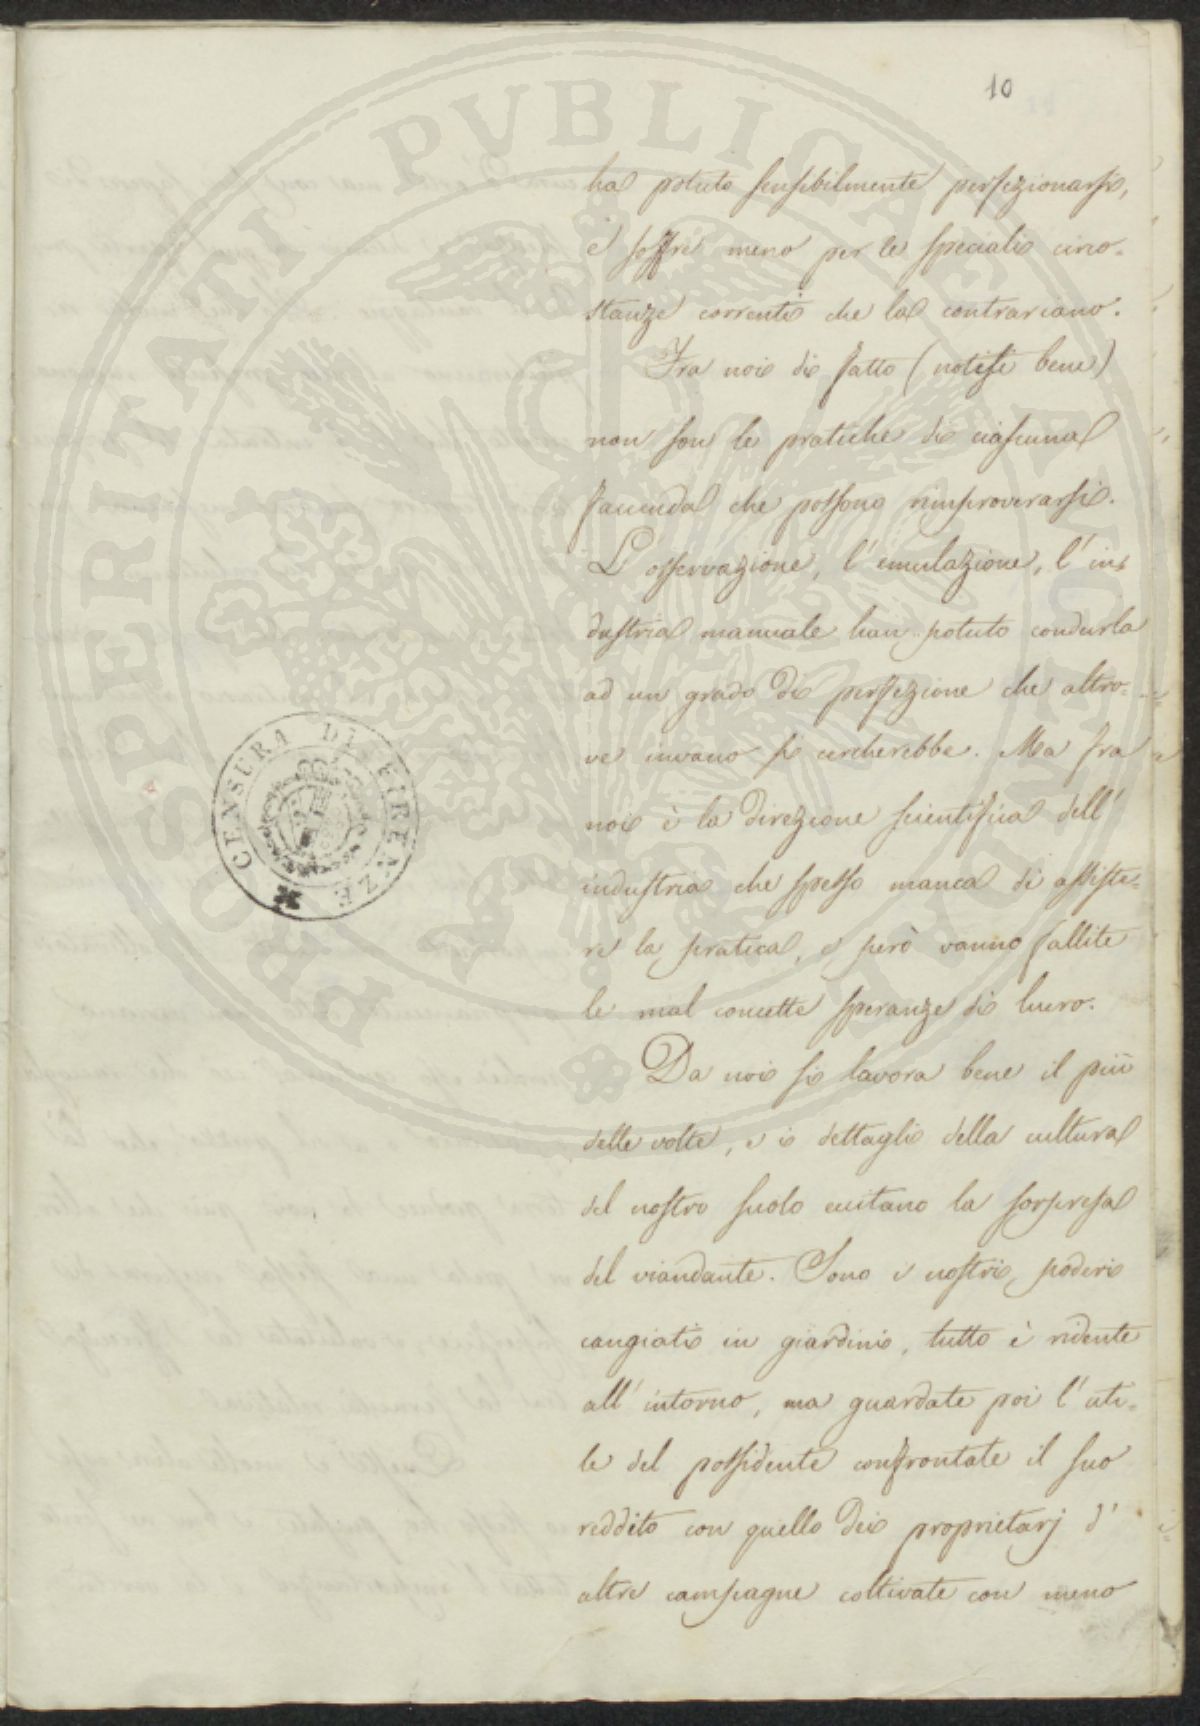 10
ha potuto sensibilmente perfezionarsi,
e soffre meno per le speciali circo=
stanze correnti che la contrariano.
Fra noi di fatto (notisi bene)
non son le pratiche di ciascuna
faccenda che possono rimproverarsi.
L'osservazione, l'emulazione, l'in=
dustria manuale han potuto condurla
ad un grado di perfezione che altro=
ve invano si cercherebbe. Ma fra
noi è la direzione scientifica dell'
industria che spesso manca di assiste=
re la pratica, e però vanno fallite
le mal concette speranze di lucro.
Da noi si lavora bene il più
delle volte, e i dettagli della cultura
del nostro suolo eccitano la sorpresa
del viandante. Sono i nostri poderi
cangiati in giardini, tutto è ridente
all'intorno, ma guardate poi l'uti=
le del possidente confrontate il suo
reddito con quello dei proprietarj d'
altre campagne coltivate con meno
CENSURA DI FIRENZE
PROSPERITATI PUBLICAE